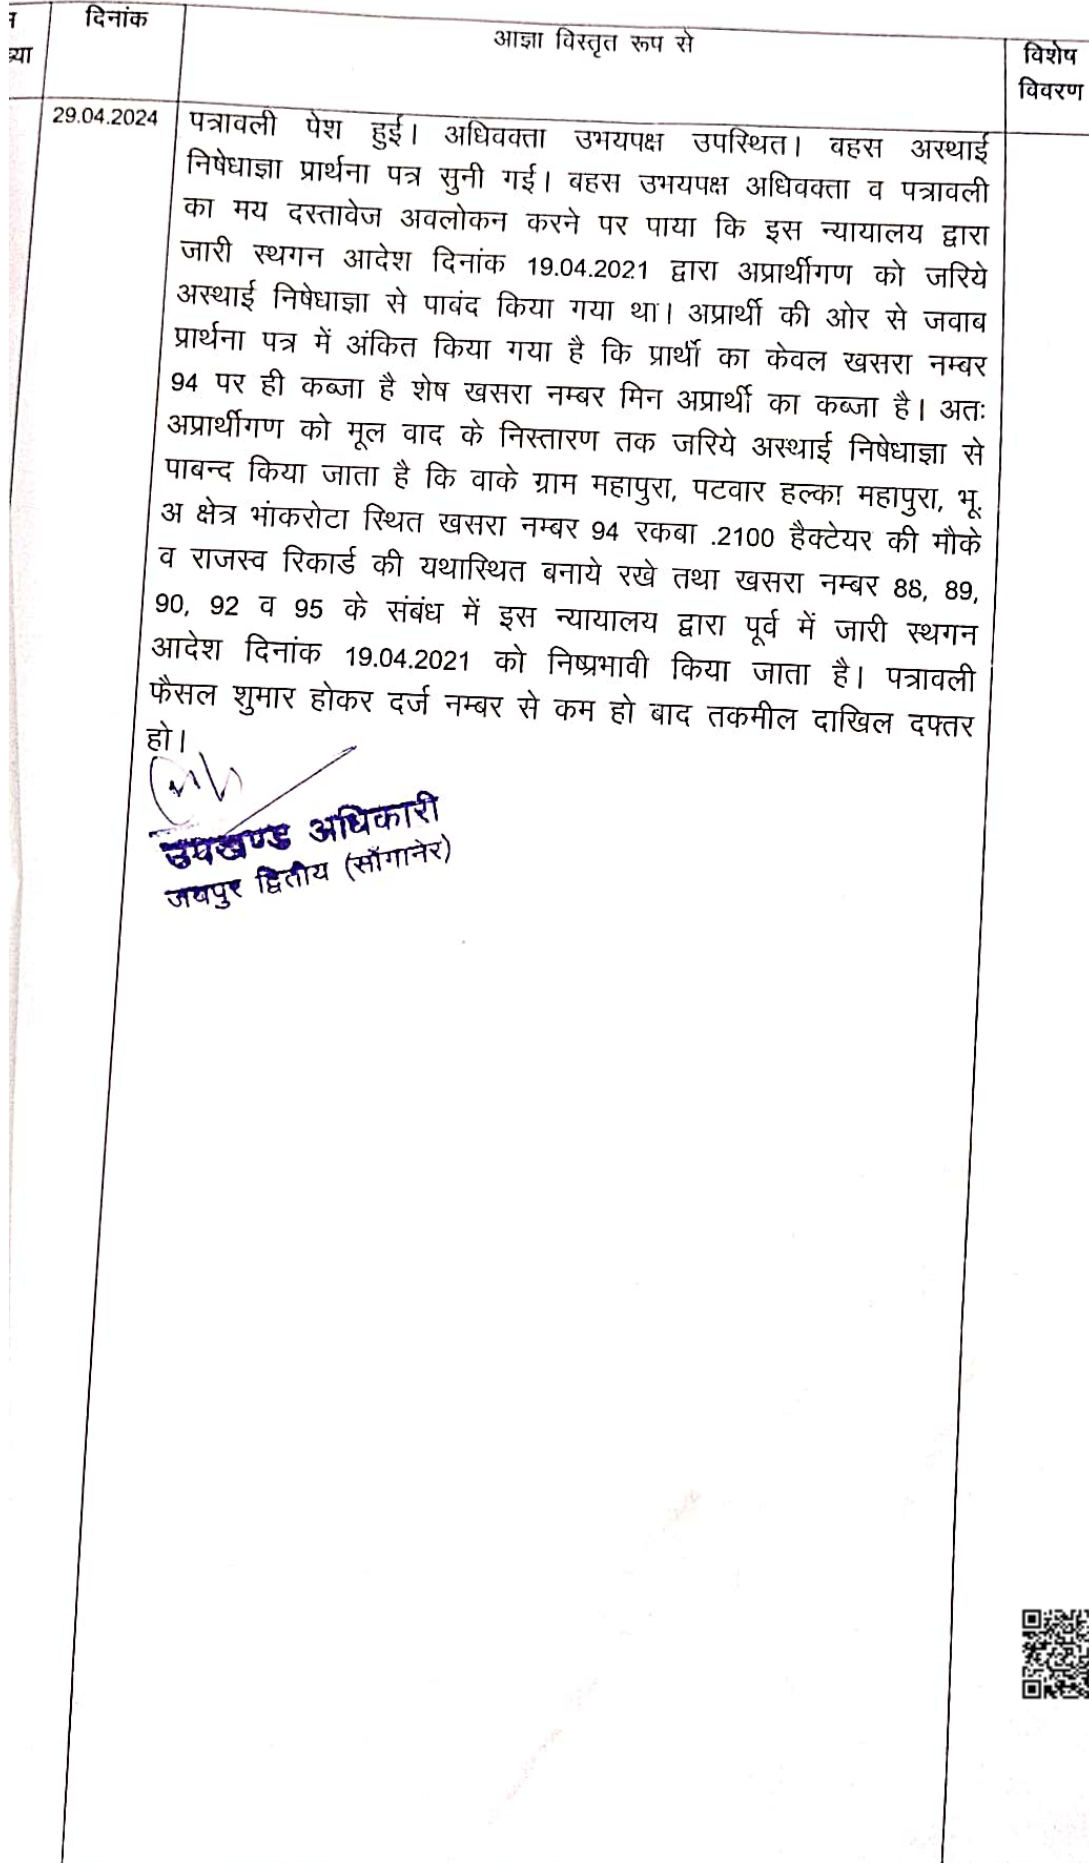 दिनांक
आज्ञा विस्तृत रूप से
विशेष
विवरण
29.04.2024
पत्रावली पेश हुई। अधिवक्ता उभयपक्ष उपस्थित। बहस अस्थाई
निषेधाज्ञा प्रार्थना पत्र सुनी गई। बहस उभयपक्ष अधिवक्ता व पत्रावली
का मय दस्तावेज अवलोकन करने पर पाया कि इस न्यायालय द्वारा
जारी स्थगन आदेश दिनांक 19.04.2021 द्वारा अप्रार्थीगण को जरिये
अस्थाई निषेधाज्ञा से पाबंद किया गया था। अप्रार्थी की ओर से जवाब
प्रार्थना पत्र में अंकित किया गया है कि प्रार्थी का केवल खसरा नम्बर
94 पर ही कब्जा है शेष खसरा नम्बर मिन अप्रार्थी का कब्जा है। अतः
अप्रार्थीगण को मूल वाद के निस्तारण तक जरिये अस्थाई निषेधाज्ञा से
पाबन्द किया जाता है कि वाके ग्राम महापुरा, पटवार हल्का महापुरा, भू.
अ क्षेत्र भांकरोटा स्थित खसरा नम्बर 94 रकबा .2100 हैक्टेयर की मौके
व राजस्व रिकार्ड की यथास्थित बनाये रखे तथा खसरा नम्बर 88, 89,
90, 92 व 95 के संबंध में इस न्यायालय द्वारा पूर्व में जारी स्थगन
आदेश दिनांक 19.04.2021 को निष्प्रभावी किया जाता है। पत्रावली
फैसल शुमार होकर दर्ज नम्बर से कम हो बाद तकमील दाखिल दफ्तर
हो।
उपखण्ड अधिकारी
जयपुर द्वितीय (साँगानेर)